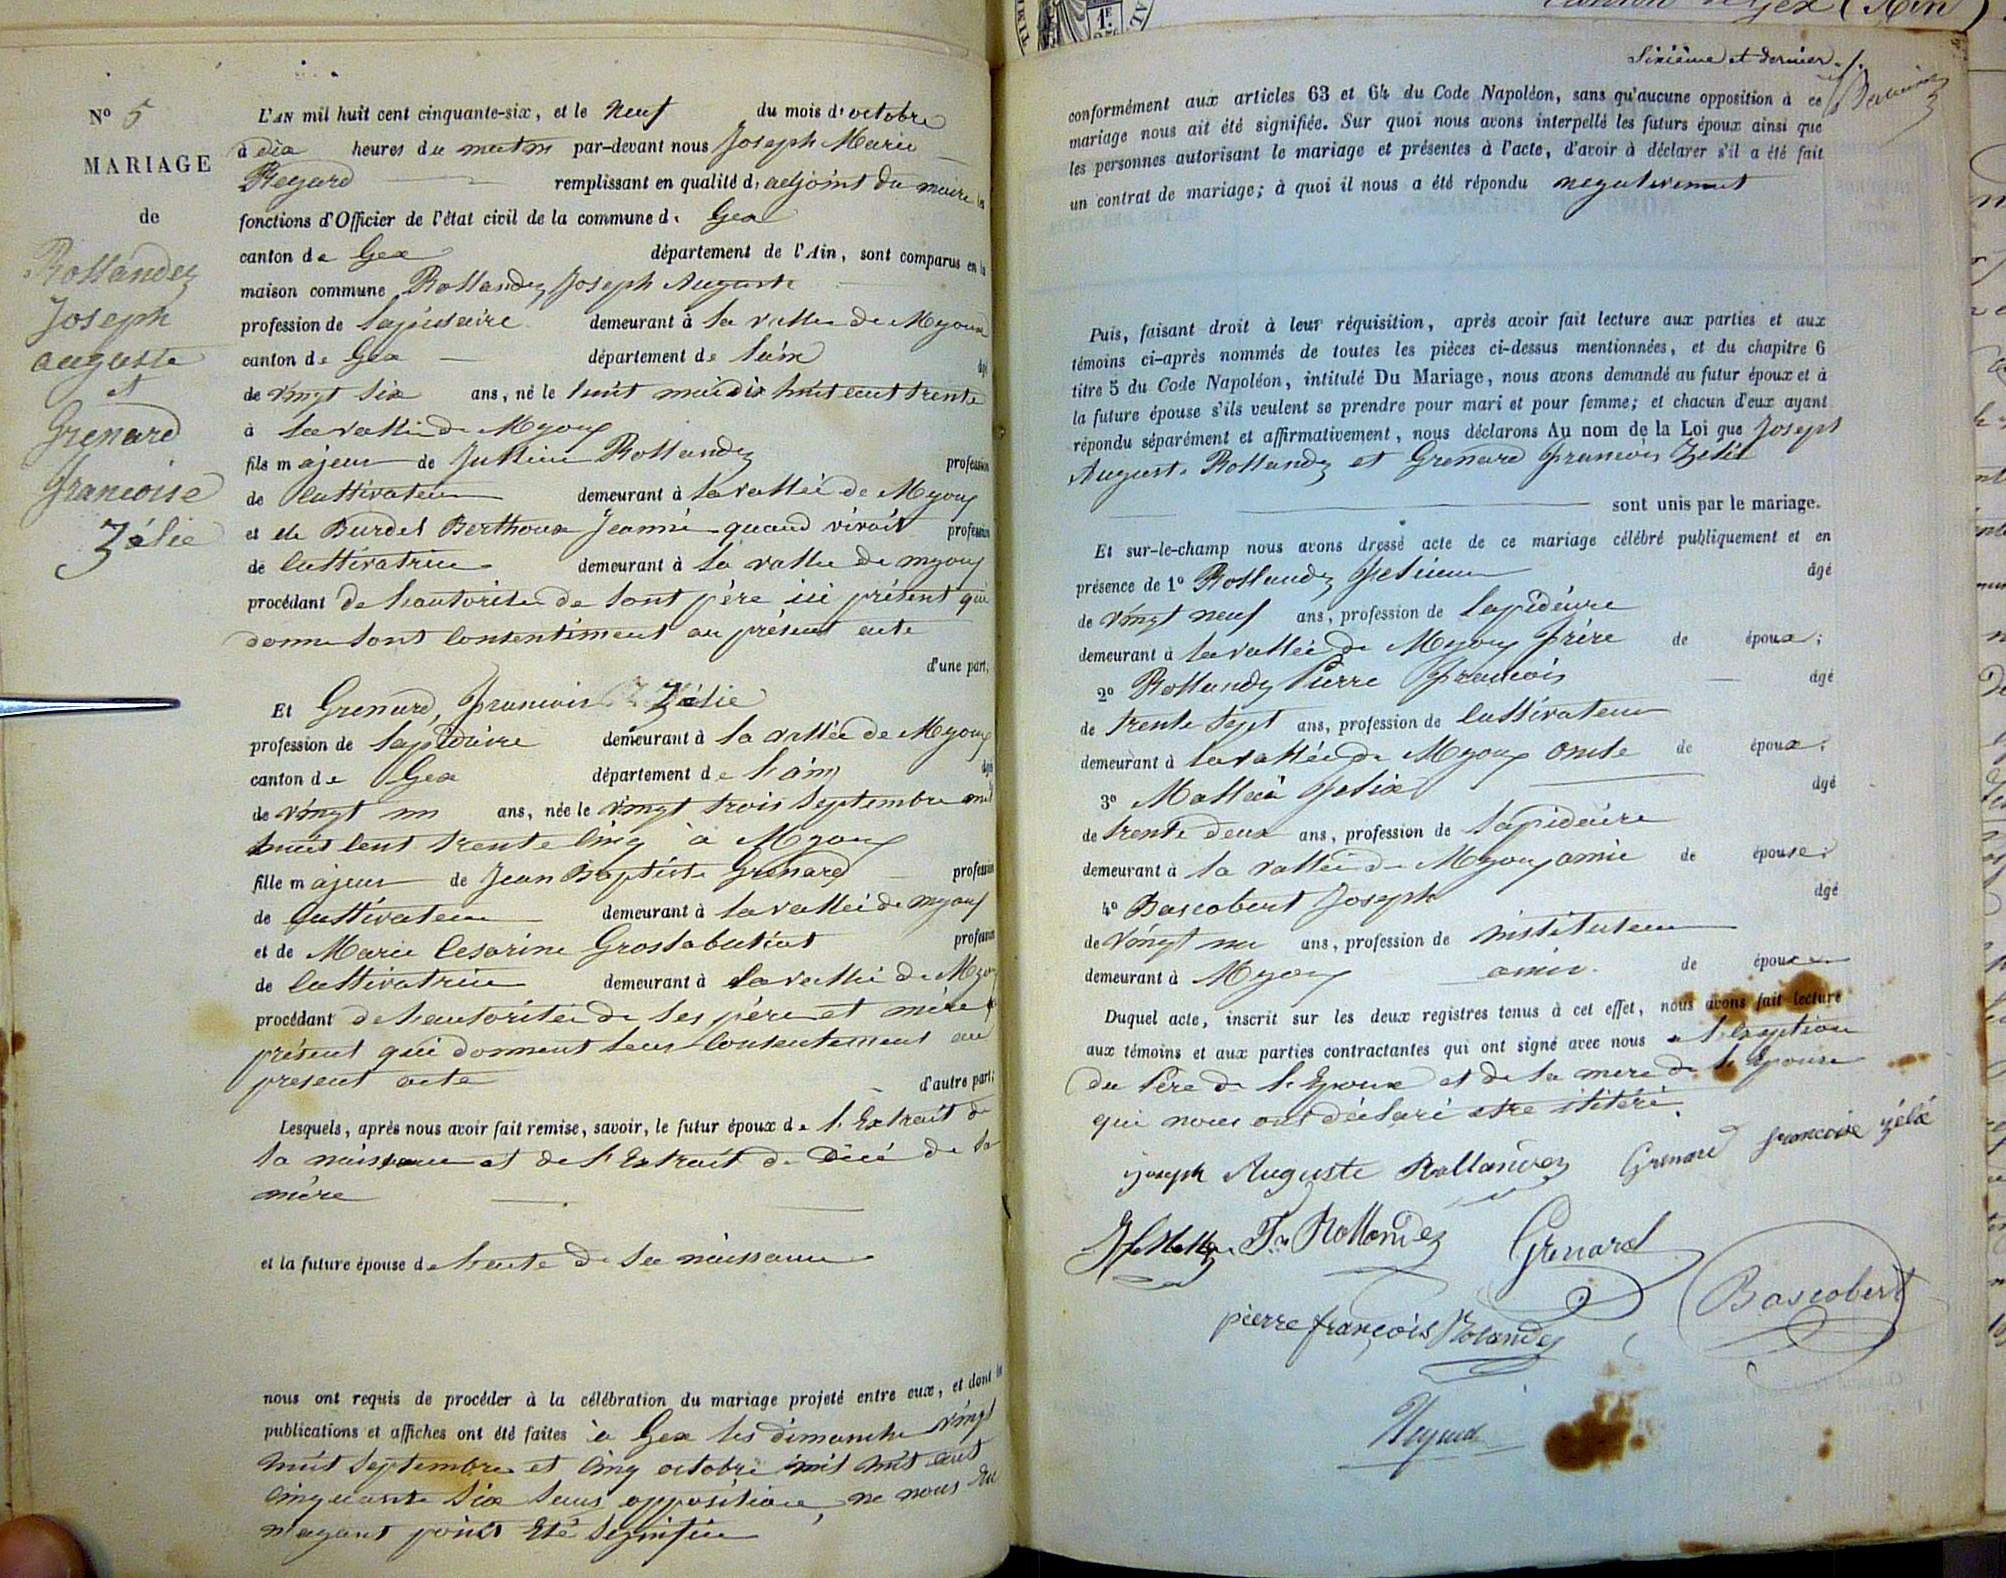 N° 5
MARIAGE
de
Rollandez
Joseph
auguste
et
Grenard
francoise
Zélie
L'AN mil huit cent cinquante-six, et le Neuf du mois d'octobre
à dix heures du matin par-devant nous Joseph Marie
Regard remplissant en qualité d'adjoint du maire les
fonctions d'Officier de l'état civil de la commune de Gex
canton de Gex département de l'Ain, sont comparus en la
maison commune Rollandez Joseph Auguste
profession de lapidaire demeurant à la vallée de Mijoux
canton de Gex département de l'ain âgé
de vingt six ans, né le huit mai dix huit cent trente
à la vallée de Mijoux
fils majeur de Jullien Rollandez profession
de Cultivateur demeurant à la vallée de Mijoux
et de Burdet Berthoux Jeanne quand vivait profession
de Cultivatrice demeurant à la vallée de mijoux
procédant de l'autorité de sont père ici présent qui
donne sont consentiment au présent acte
d'une part;
Et Grenard, francois Zélie
profession de lapidaire demeurant à la vallée de Mijoux
canton de Gex département de l'ain âgé
de vingt un ans, née le vingt trois septembre mil
huit cent trente cinq à Mijoux
fille majeur de Jean Baptiste Grenard profession
de Cultivateur demeurant à la vallée de mijoux
et de Marie Cesarine Grossabutiat profession
de Cultivatrice demeurant à la vallée de Mijoux
procédant de l'autoritée de ses père et mère
présent qui donnent leur consentement au
présent acte d'autre part;
Lesquels, après nous avoir fait remise, savoir, le futur époux de l'Extrait de
sa naissance et de l'Extrait de Décé de sa
mère
et la future épouse de l'acte de sa naissance
nous ont requis de procéder à la célébration du mariage projeté entre eux, et dont les
publications et affiches ont été faites à Gex les dimanche vingt
huit septembre et cinq octobre mil huit cent
cinquante six sans opposition, ne nous en
n'ayant point été signifiée
Sixième et dernier
conformément aux articles 63 et 64 du Code Napoléon, sans qu'aucune opposition à ce
mariage nous ait été signifiée. Sur quoi nous avons interpellé les futurs époux ainsi que
les personnes autorisant le mariage et présentes à l'acte, d'avoir à déclarer s'il a été fait
un contrat de mariage; à quoi il nous a été répondu negativement
Puis, faisant droit à leur réquisition, après avoir fait lecture aux parties et aux
témoins ci-après nommés de toutes les pièces ci-dessus mentionnées, et du chapitre 6
titre 5 du Code Napoléon, intitulé Du Mariage, nous avons demandé au futur époux et à
la future épouse s'ils veulent se prendre pour mari et pour femme; et chacun d'eux ayant
répondu séparément et affirmativement, nous déclarons Au nom de la Loi que Joseph
Auguste Rollandez et Grenard francois Zelie
sont unis par le mariage.
Et sur-le-champ nous avons dressé acte de ce mariage célébré publiquement et en
présence de 1° Rollandez âgé
de vingt neuf ans, profession de lapidaire
demeurant à la vallée de Mijoux frère de époux;
2° Rollandez Pierre François âgé
de trente sept ans, profession de Cultivateur
demeurant à la vallée de Mijoux oncle de époux;
3° felix âgé
de trente deux ans, profession de lapidaire
demeurant à la vallée de Mijoux amie de épouse;
4° Bascobert Joseph âgé
de vingt un ans, profession de instituteur
demeurant à Mijoux amis de époux
Duquel acte, inscrit sur les deux registres tenus à cet effet, nous avons fait lecture
aux témoins et aux parties contractantes qui ont signé avec nous a l'exeption
du Père de l'Epoux et de la mere de l'Epouse
qui nous ont déclaré etre ilitéré.
joseph Auguste Rollandez Grenard francoise zélé
Rollandez Grenard
pierre françois Rolandez Bascobert
Regard
canton Gex (Ain)